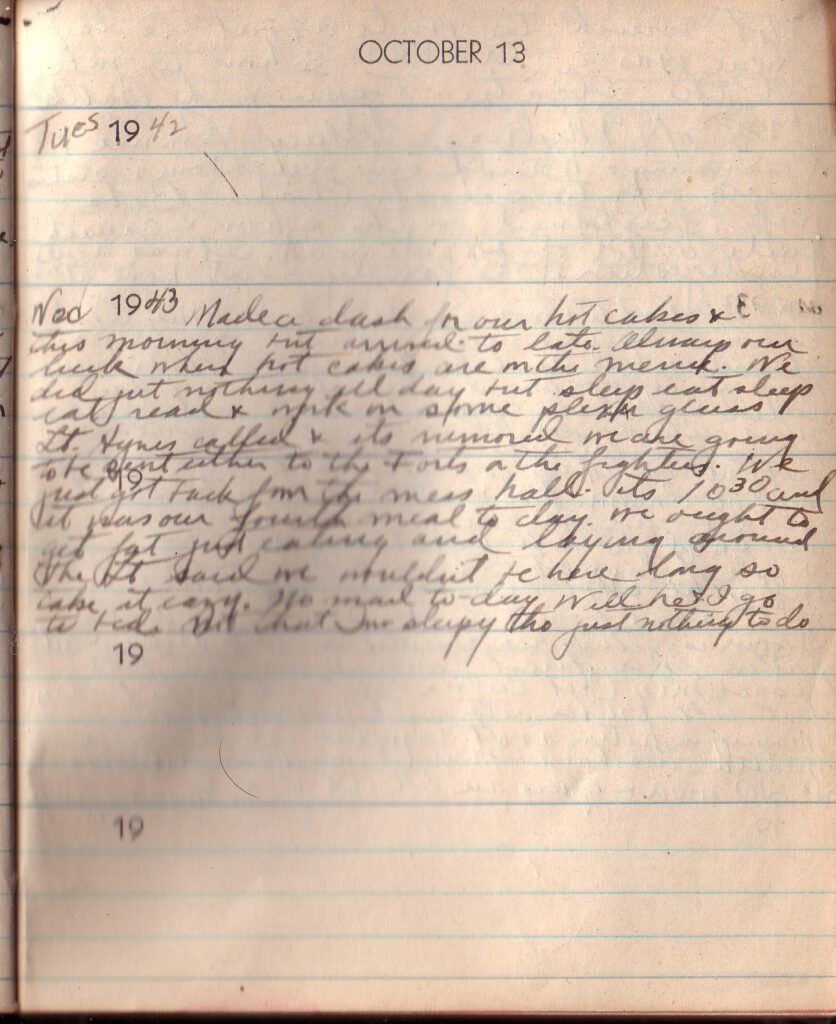 OCTOBER 13
Tues 1942
Wed 1943 Made a dash for our hot cakes &
this morning but arrived to late. Always our
luck when hot cakes are on the menu. We
did just nothing all day but sleep eat sleep
eat read & work on some plexi glass
Lt. Hynes called & its rumored we are going
to be sent either to the Forts or the fighters. We
19
just got back from the mess hall. its 10 30 and
it was our fourth meal to day. We ought to
get fat just eating and laying around
The Lt said we wouldnt be here long so
take it easy. No mail to-day Well I go
to bed. Not that Im sleepy tho just nothing to do
19
19